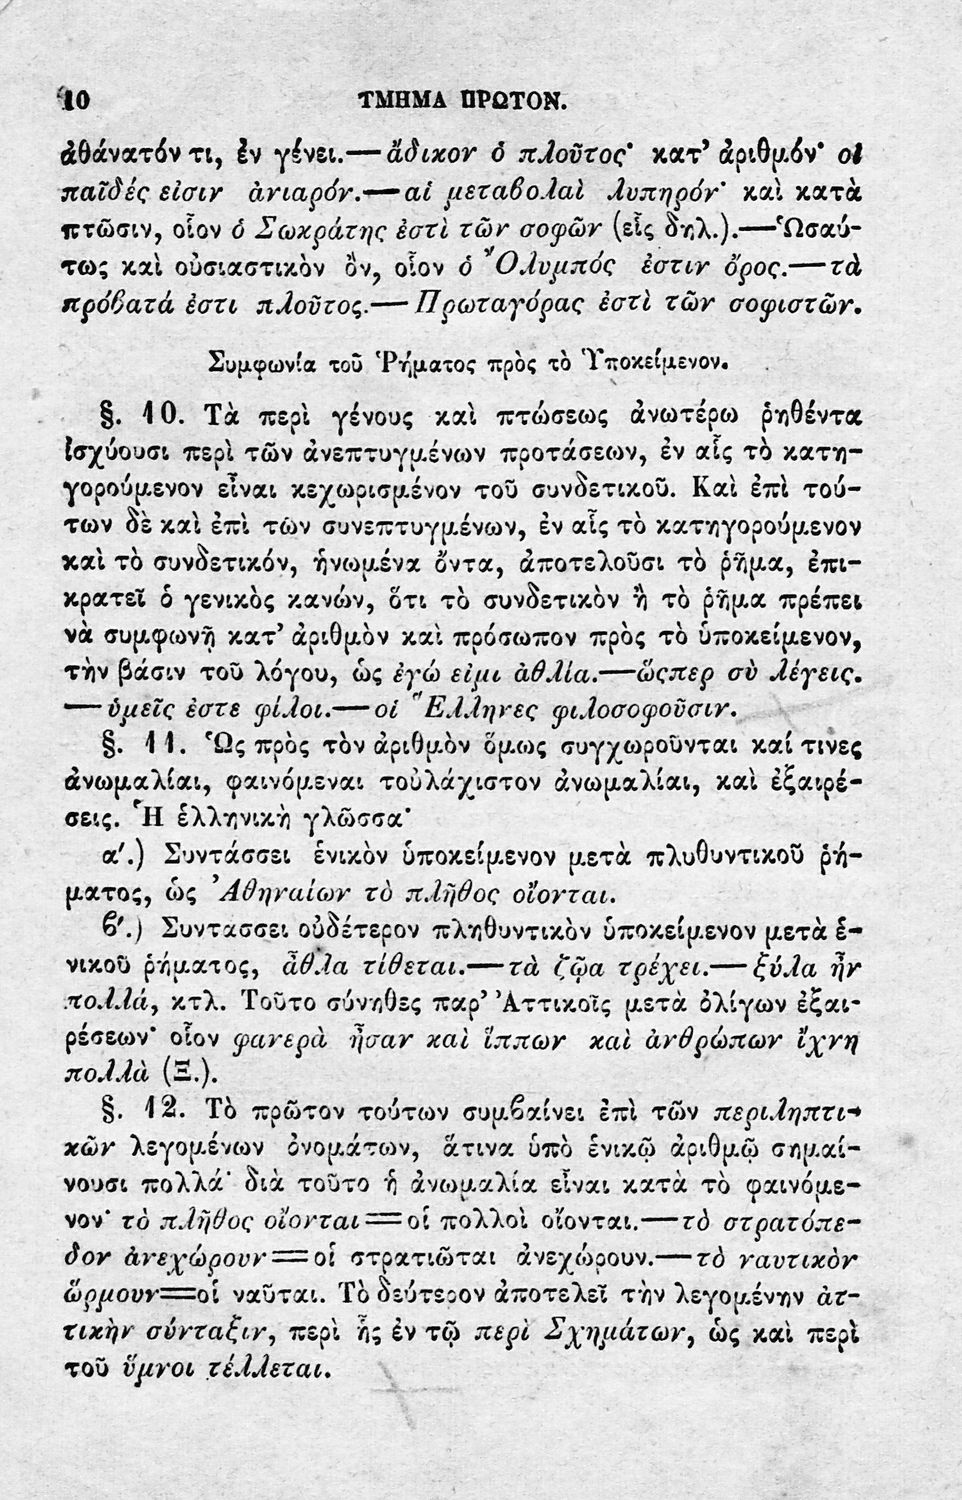 10 ΤΜΗΜΑ ΠΡΩΤΟΝ.
ἀθάνατόν τι, ἐν γένει.—ἄδικον ὁ πλοῦτος· κατ' ἀριθμόν· οἱ
παῖδές εἰσιν ἀνιαρόν.—αἱ μεταβολαὶ λυπηρόν· καὶ κατὰ
πτῶσιν, οἷον ὁ Σωκράτης ἐστὶ τῶν σοφῶν (εἷς δηλ.).—Ὡσαύ-
τως καὶ οὐσιαστικὸν ὂν, οἷον ὁ Ὄλυμπός ἐστιν ὄρος.—τὰ
πρόβατά ἐστι πλοῦτος.—Πρωταγόρας ἐστὶ τῶν σοφιστῶν.
Συμφωνία τοῦ Ῥήματος πρὸς τὸ Ὑποκείμενον.
§. 10. Τὰ περὶ γένους καὶ πτώσεως ἀνωτέρω ῥηθέντα
ἰσχύουσι περὶ τῶν ἀνεπτυγμένων προτάσεων, ἐν αἷς τὸ κατη-
γορούμενον εἶναι κεχωρισμένον τοῦ συνδετικοῦ. Καὶ ἐπὶ τού-
των δὲ καὶ ἐπὶ τῶν συνεπτυγμένων, ἐν αἷς τὸ κατηγορούμενον
καὶ τὸ συνδετικόν, ἡνωμένα ὄντα, ἀποτελοῦσι τὸ ῥῆμα, ἐπι-
κρατεῖ ὁ γενικὸς κανών, ὅτι τὸ συνδετικὸν ἢ τὸ ῥῆμα πρέπει
νὰ συμφωνῇ κατ' ἀριθμὸν καὶ πρόσωπον πρὸς τὸ ὑποκείμενον,
τὴν βάσιν τοῦ λόγου, ὡς ἐγώ εἰμι ἀθλία.—ὥςπερ σὺ λέγεις.
—ὑμεῖς ἐστε φίλοι.—οἱ Ἕλληνες φιλοσοφοῦσιν.
§. 11. Ὡς πρὸς τὸν ἀριθμὸν ὅμως συγχωροῦνται καί τινες
ἀνωμαλίαι, φαινόμεναι τοὐλάχιστον ἀνωμαλίαι, καὶ ἐξαιρέ-
σεις. Ἡ ἑλληνικὴ γλῶσσα·
α'.) Συντάσσει ἑνικὸν ὑποκείμενον μετὰ πλυθυντικοῦ ῥή-
ματος, ὡς Ἀθηναίων τὸ πλῆθος οἴονται.
β'.) Συντάσσει οὐδέτερον πληθυντικὸν ὑποκείμενον μετὰ ἑ-
νικοῦ ῥήματος, ἆθλα τίθεται.—τὰ ζῷα τρέχει.—ξύλα ἦν
πολλά, κτλ. Τοῦτο σύνηθες παρ' Ἀττικοῖς μετὰ ὀλίγων ἐξαι-
ρέσεων· οἷον φανερὰ ἦσαν καὶ ἵππων καὶ ἀνθρώπων ἴχνη
πολλὰ (Ξ.).
§. 12. Τὸ πρῶτον τούτων συμβαίνει ἐπὶ τῶν περιληπτι-
κῶν λεγομένων ὀνομάτων, ἅτινα ὑπὸ ἑνικῷ ἀριθμῷ σημαί-
νουσι πολλά· διὰ τοῦτο ἡ ἀνωμαλία εἶναι κατὰ τὸ φαινόμε-
νον· τὸ πλῆθος οἴονται=οἱ πολλοὶ οἴονται.—τὸ στρατόπε-
δον ἀνεχώρουν=οἱ στρατιῶται ἀνεχώρουν.—τὸ ναυτικὸν
ὥρμουν=οἱ ναῦται. Τὸ δεύτερον ἀποτελεῖ τὴν λεγομένην ἀτ-
τικὴν σύνταξιν, περὶ ἧς ἐν τῷ περὶ Σχημάτων, ὡς καὶ περὶ
τοῦ ὕμνοι τέλλεται.